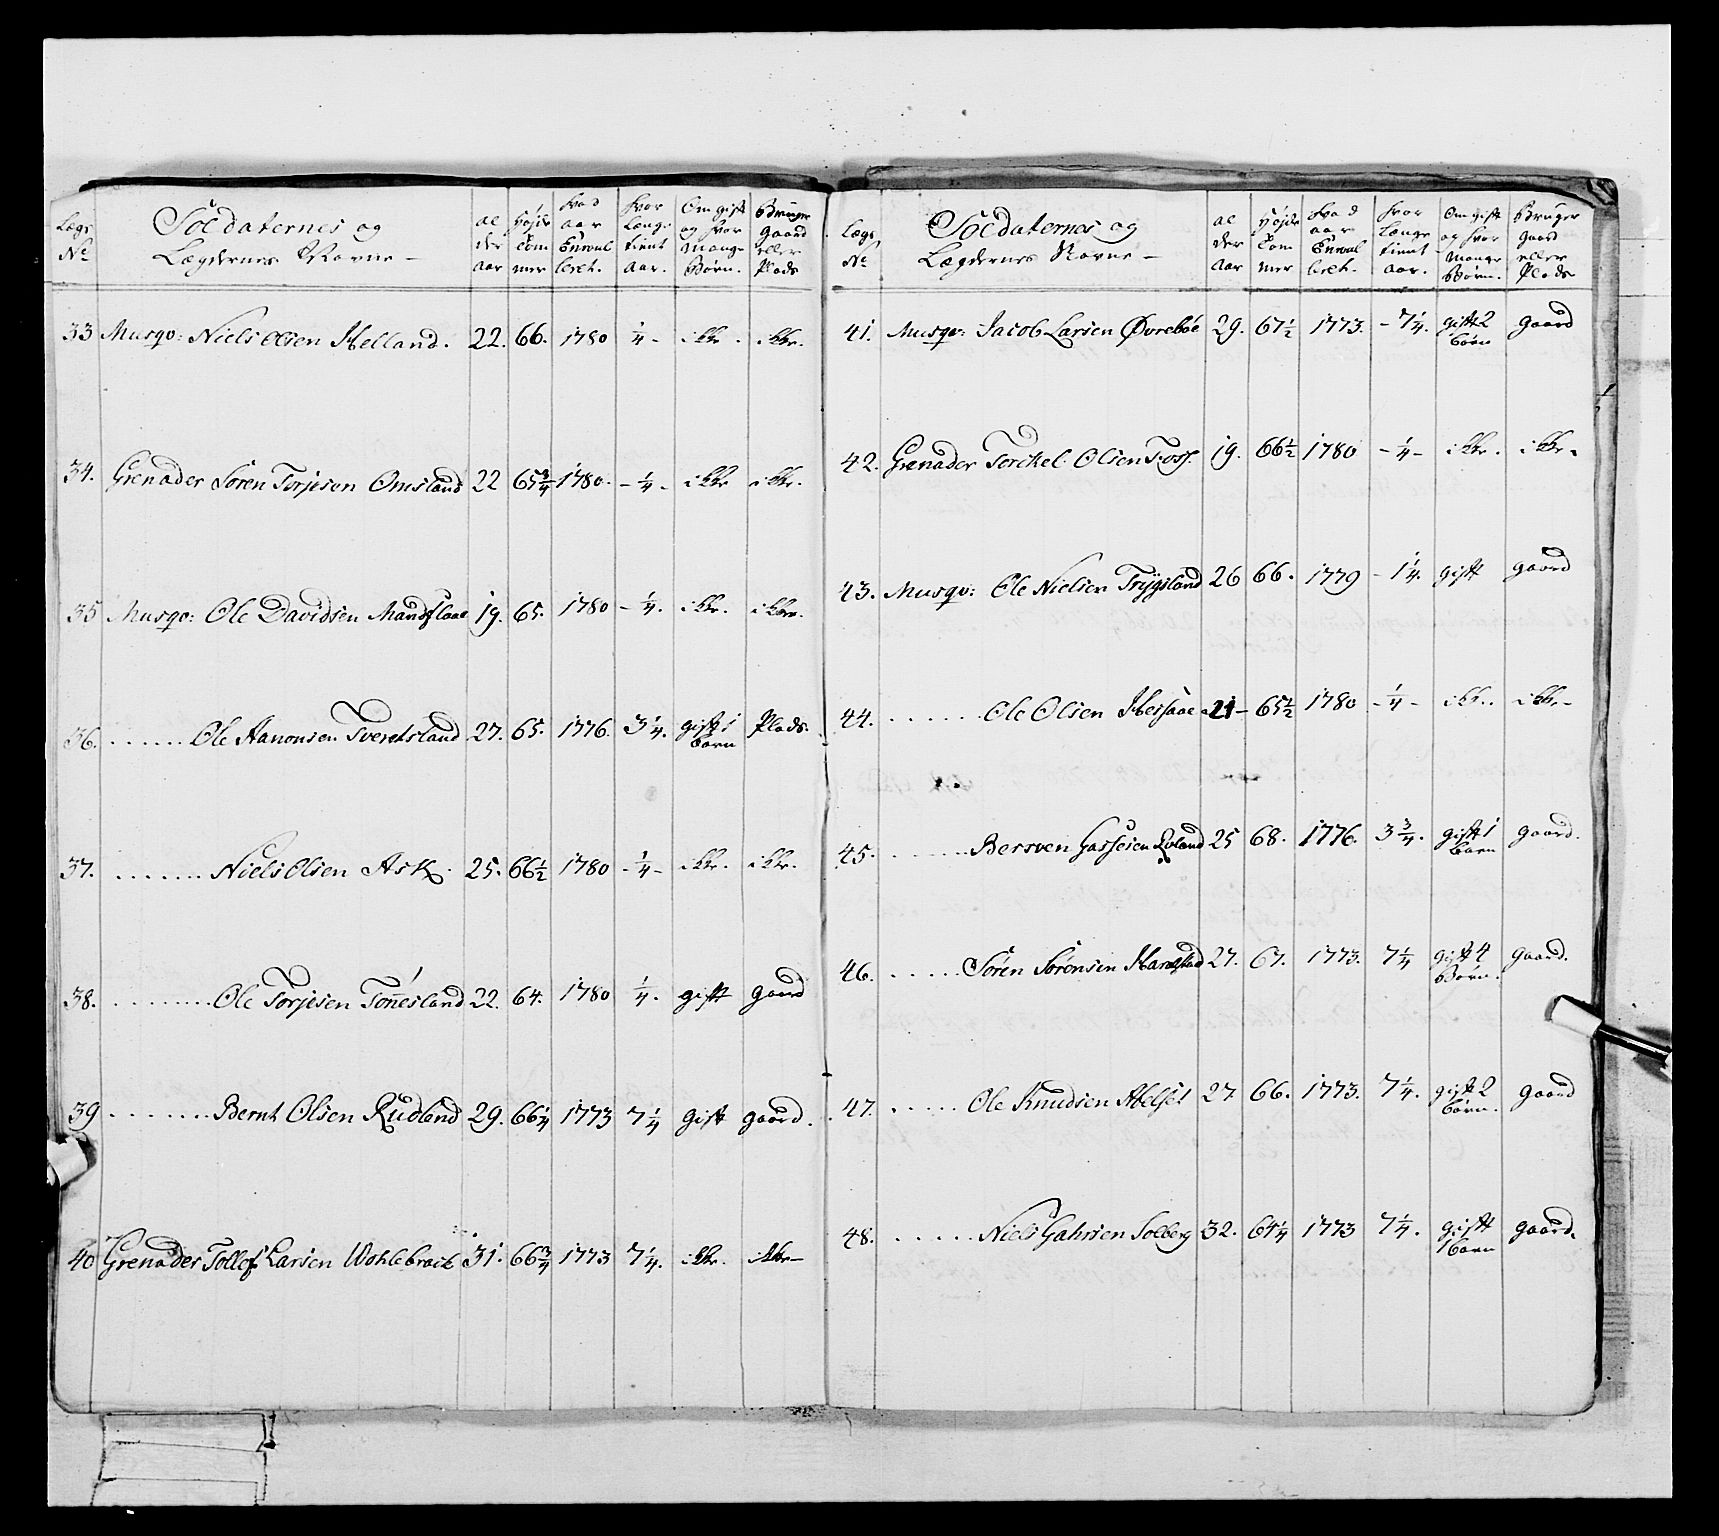 Lægs No
Soldaternes og Lægdernes Navne –
al der aar
Høide Tom mer
Hvad aar Enroul leret.
Hvor længe tient aar.
Om gift og hvor mange Børn.
Bruger gaard eller Plads
33 Musqv: Niels Olsen Helland. 22. 66. 1780 ¼ - ikke. ikke.
34. Grenader Søren Torjesen Omsland 22 65¾ 1780. - ¼ - ikke ikke.
35 Musqv: Ole Davidsen Mandflaae 19. 65. 1780 - ¼. ikke. ikke.
36. . . . . . . Ole Aanonsen Tveretsland 27. 65. 1776. 3¼. gift 1 barn Plads.
37. . . . . . . . Niels Olsen Ask. 25. 66½ 1780 - ¼ - ikke. ikke.
38. . . . . . . . . Ole Torjesen Tonnesland 22. 64. 1780 ¼. gift gaard
39 . . . . . . . . Bernt Olsen Rudland 29. 66¼ 1773 7¼ gift gaard.
40 Grenader Tollof Larsen Wohlebræk 31. 66¾ 1773 7¼. ikke. ikke –
Lægs No
Soldaternes og Lægdernes Navne –
al der aar
Høide Tom mer
Hvad aar Enroul leret.
Hvor længe tient aar.
Om gift og hvor mange Børn.
Bruger gaard eller Plads
41. Musqv: Jacob Larsen Øvrebøe 29. 67½ 1773. - 7¼. gift 2 børn gaard
42. Grenader Torckel Olsen Foss. 19. 66½ 1780 - ¼ - ikke. ikke.
43. Musqv: Ole Nielsen Trygsland 26 66. 1779 - 1¼. gift gaard
44. . . . . . . . Ole Olsen Hessaae 21 - 65½ 1780 - ¼ - ikke. ikke -
45. . . . . . . Bersven Gasseien Roland 25 68. 1776. 3¾. gift 1 barn gaard.
46. . . . . . Søren Sørensen 27. 67. 1773. 7¼ gift 4 Børn. gaard.
47. . . . . . Ole Knudsen Abelset 27 66. 1773. 7¼. gift 2 børn. gaard
48. . . . . . . Niels Gahrsen Solberg 32. 64¼ 1773 7¼. gift 1 barn gaard.